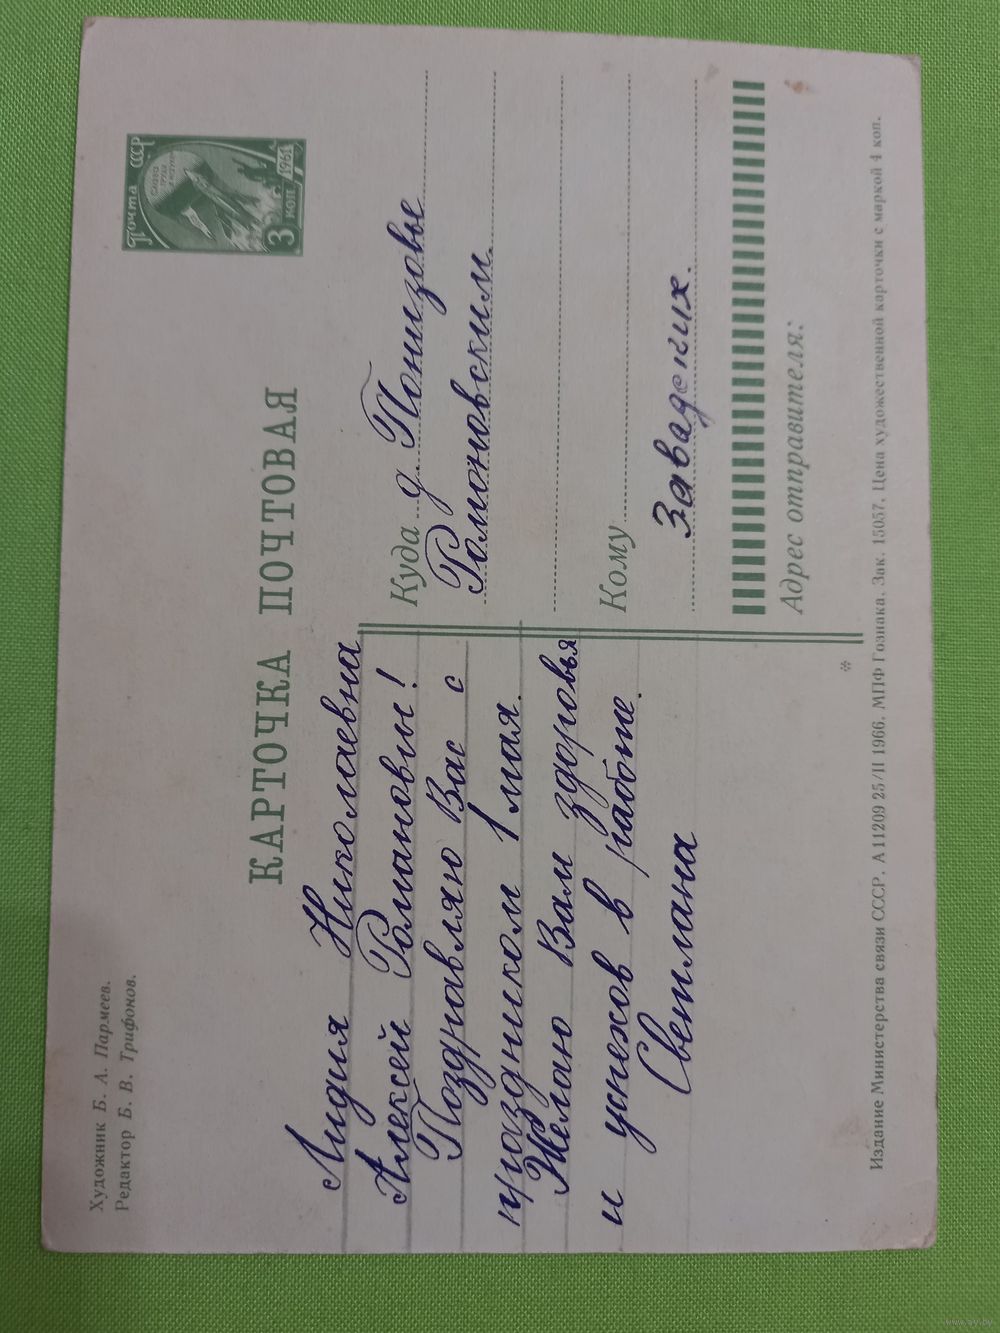 Художник Б. А. Пармеев.
Редактор Б. В. Трифонов.
КАРТОЧКА ПОЧТОВАЯ
Почта СССР
3 КОП.
1961
Лидия Николаевна
Алексей Романовы!
Поздравляю Вас с
праздником 1 мая.
Желаю Вам здоровья
и успехов в работе.
Светлана
Куда д. Понизовье
Романовским.
Кому
Завадских.
Адрес отправителя:
*
Издание Министерства связи СССР. А 11209 25/II 1966. МПФ Гознака. Зак. 15057. Цена художественной карточки с маркой 4 коп.
www.ay.by